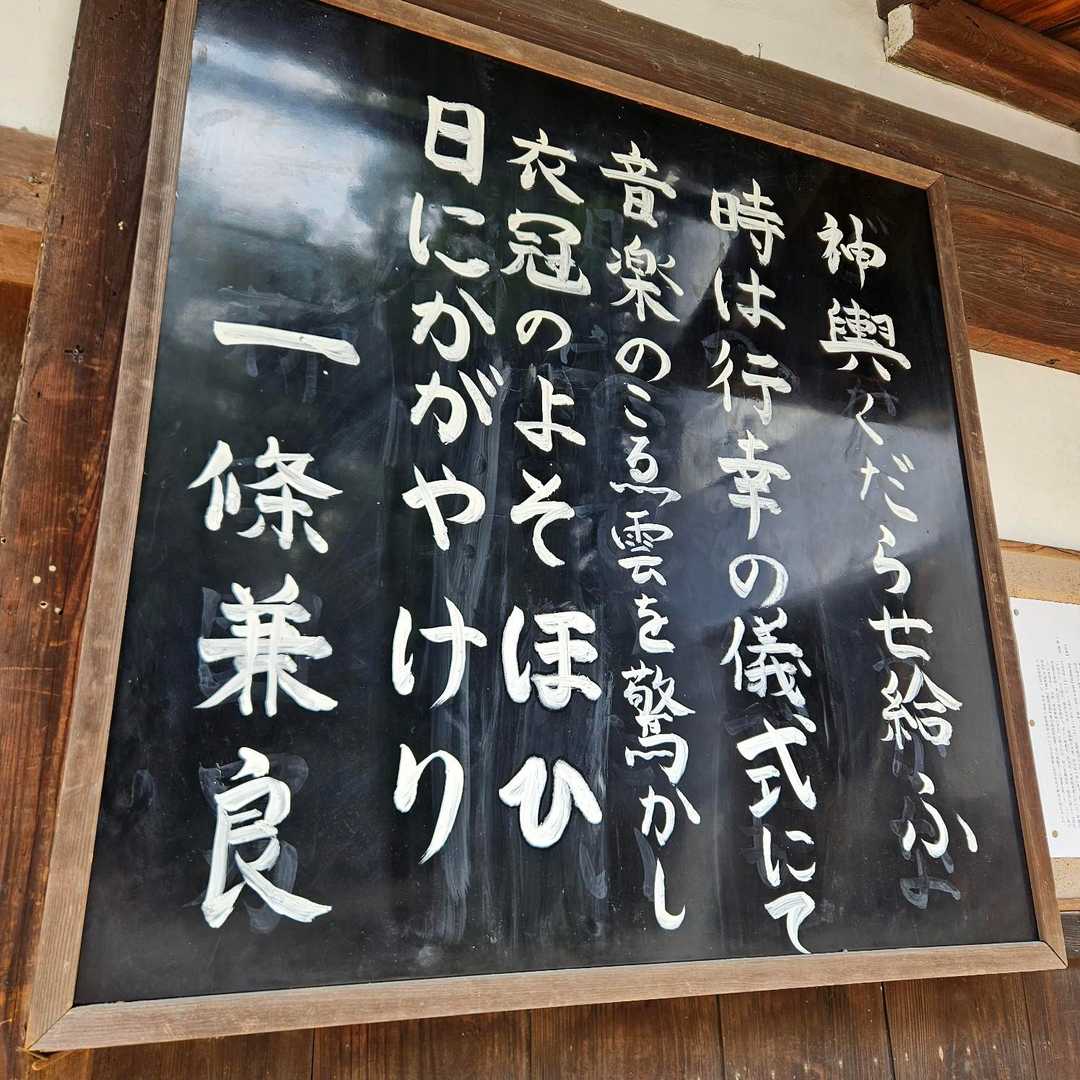 神輿くだらせ給ふ
時は行幸の儀式にて
音楽のこゑ雲を驚かし
衣冠のよそほひ
日にかがやけり
一條兼良